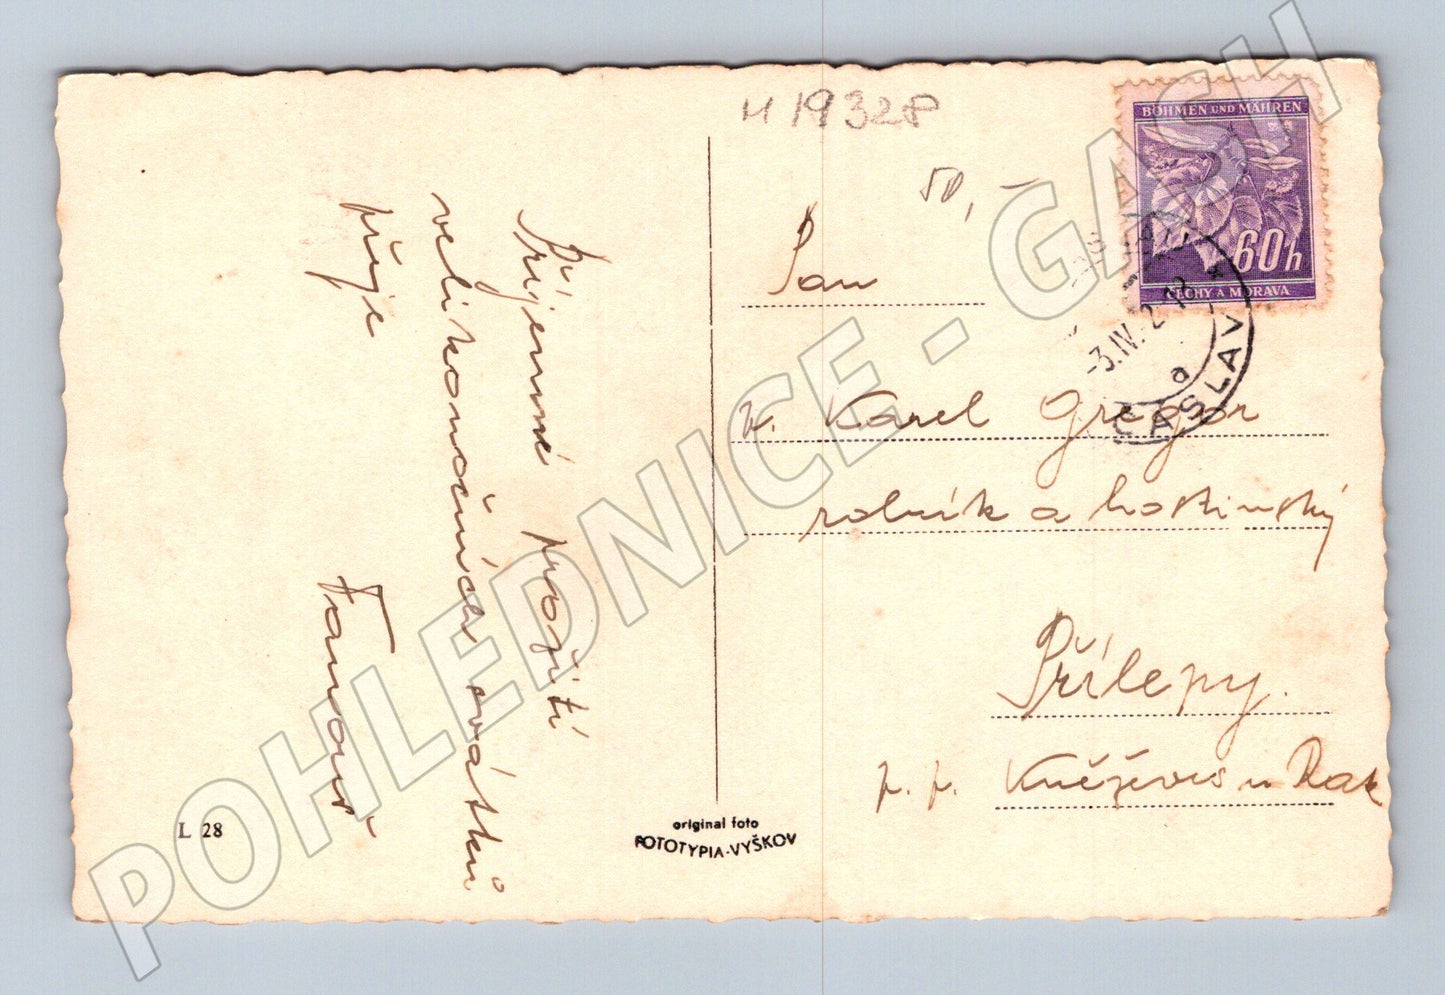 M 1932P
50,-
BÖHMEN UND MÄHREN
60h
ČECHY A MORAVA
-3.IV.
ČÁSLAV
a
Příjemné prožití
velikonočních svátků
přeje
Pan
Karel Gregor
rolník a hostinský
Přílepy.
p. p. Kněževes u Rak
L 28
original foto
FOTOTYPIA-VYŠKOV
POHLEDNICE - GASH